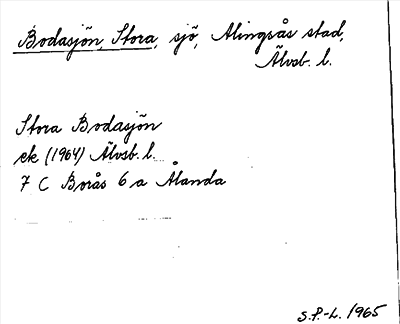 Bodasjön, Stora, sjö, Alingsås stad,
Älvsb. l.
Stora Bodasjön
ek (1964) Älvsb. l.
7 C Borås 6 a Ålanda
S.P.-L. 1965